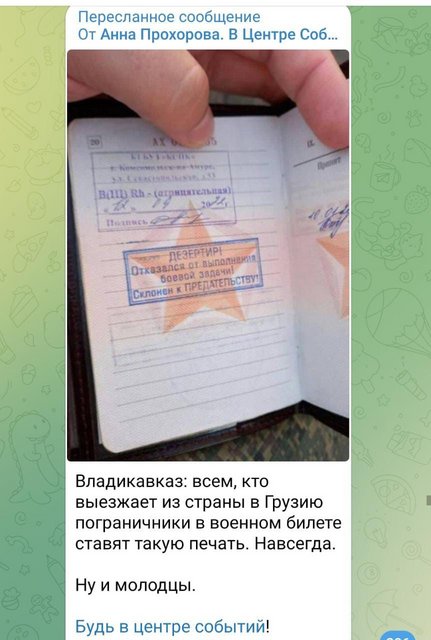 Пересланное сообщение
От Анна Прохорова. В Центре Соб...
20
АХ
г. Комсомольск-на-Амуре,
B(III) Rh - (отрицательная)
Подпись
ДЕЗЕРТИР!
Отказался от выполнения
боевой задачи!
Склонен к ПРЕДАТЕЛЬСТВУ!
IX.
Владикавказ: всем, кто
выезжает из страны в Грузию
пограничники в военном билете
ставят такую печать. Навсегда.
Ну и молодцы.
Будь в центре событий!